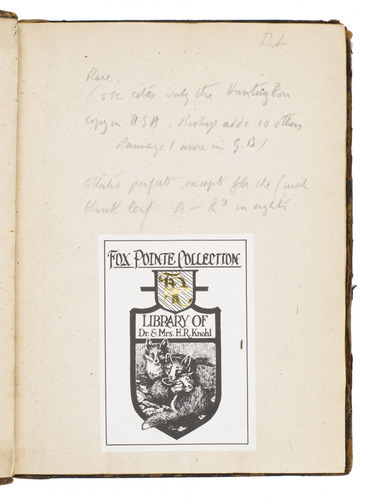 D.L
Rare.
( STC cites only the Huntington
copy in USA ; Bishop adds 10 others
Ramage 1 more in G.B )
perfect except for the final
blank leaf. A – R⁸ in eights.
FOX POINTE COLLECTION
LIBRARY OF
Dr. & Mrs. H.R. Knohl